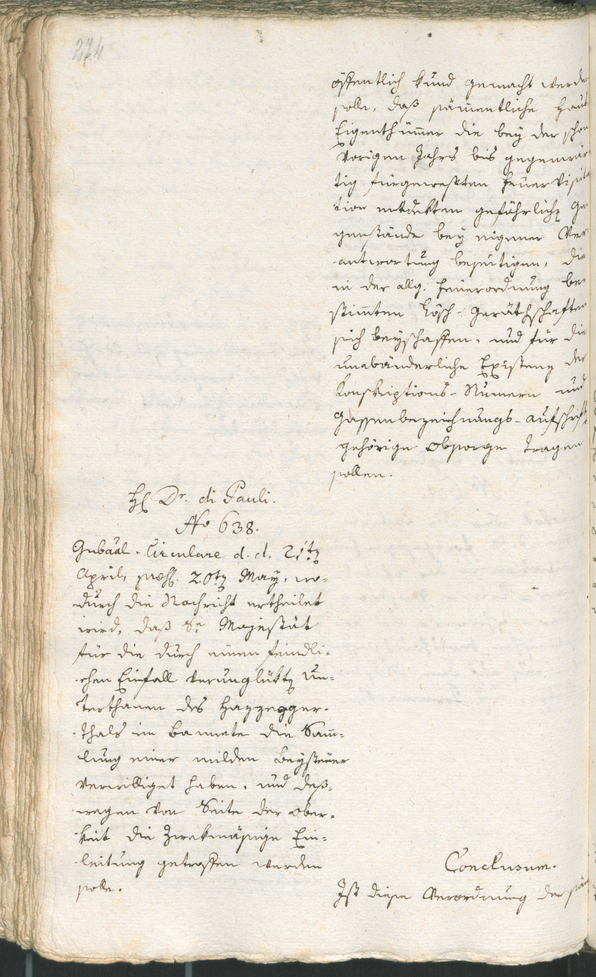 274
öffentlich kund gemacht werde
solle, daß sämentliche Haus
Eigenthümer die bey der schon
vorigen Jahrs bis gegenwär
tig fürgewesten Feuer Visita
tion entdekten gefährlich Ge
genstände bey eigener Ver
antwortung beseitigen, die
in der allg. Feuerordnung be
stimten Lösch-Geräthschaften
sich beyschaffen, und für die
unabänderliche Existenz der
Konskriptions-Numern und
Gassenbezeichnungs-Aufschrift
gehörige Obsorge tragen
sollen.
H Dr. di Pauli.
No 638.
Gubäal-Circulare d. d. 21t
April, präs. 20t May, wo-
durch die Nachricht ertheilet
wird, daß Sr Majestät
für die durch einen feindli-
chen Einfall verunglükt Un-
terthanen des Hazegger-
thals im Bannate die Sam-
lung einer milden Beysteuer
verwilliget haben, und daß-
wegen von Seite der Ober-
keit die Zwekmäsige Ein-
leitung getroffen werden
solle.
Conclusum.
Ist diese Verordnung der